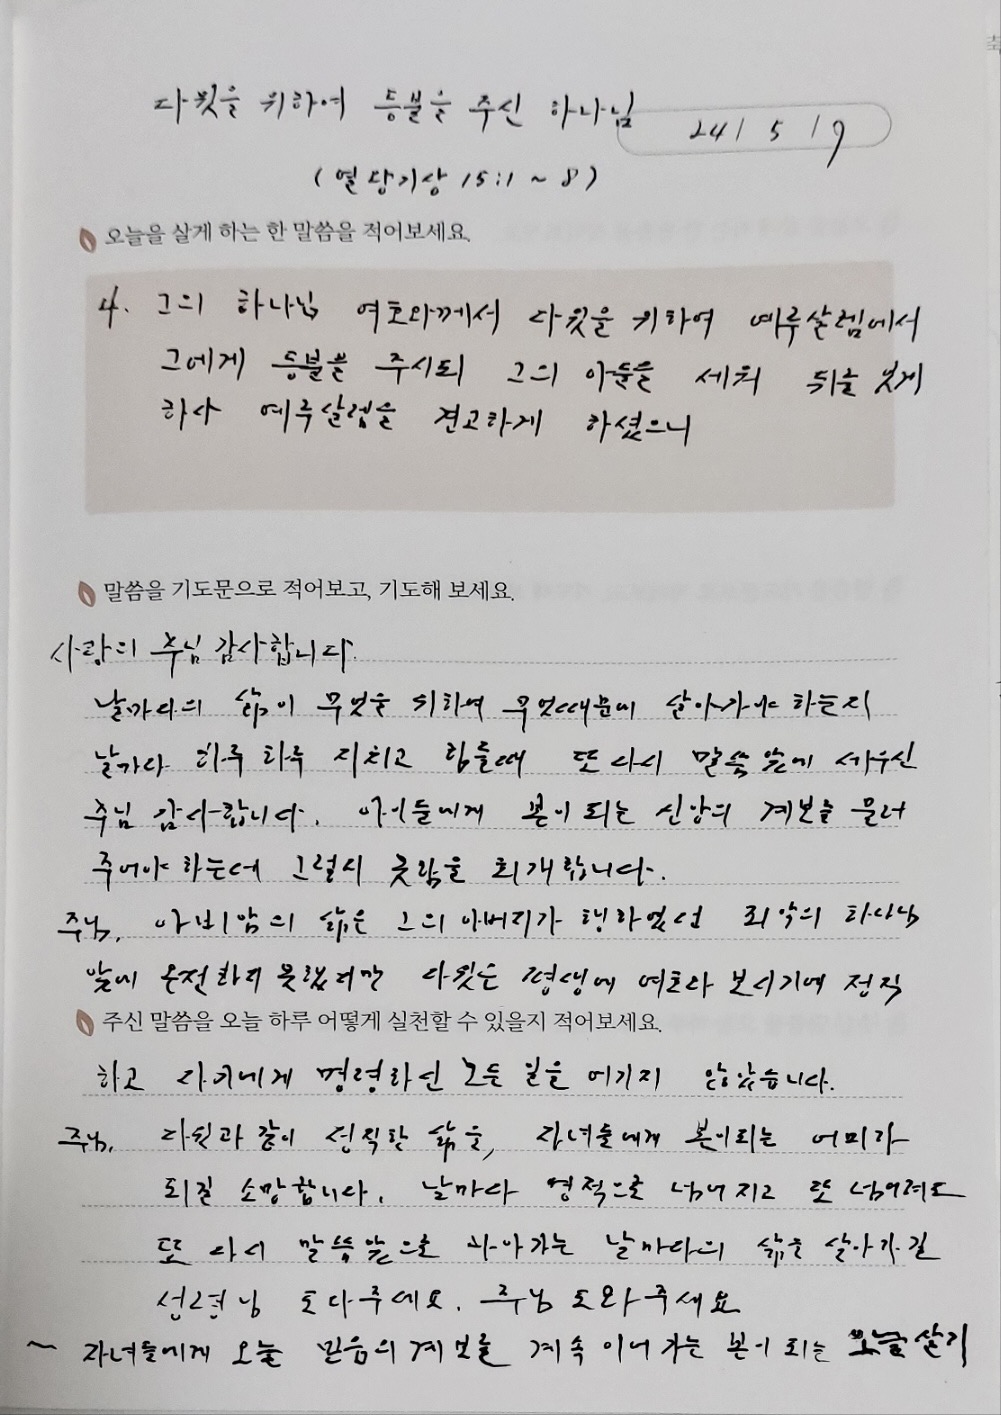 다윗을 위하여 등불을 주신 하나님
24 / 5 / 9
(열왕기상 15:1 ~ 8)
오늘을 살게 하는 한 말씀을 적어보세요.
4. 그의 하나님 여호와께서 다윗을 위하여 예루살렘에서
그에게 등불을 주시되 그의 아들을 세워 뒤를 잇게
하사 예루살렘을 견고하게 하셨으니
말씀을 기도문으로 적어보고, 기도해 보세요.
사랑의 주님 감사합니다.
날마다의 삶이 무엇을 위하여 무엇때문에 살아가야 하는지
날마다 하루 하루 지치고 힘들때 또 다시 말씀 앞에 세우신
주님 감사합니다. 아이들에게 본이 되는 신앙의 계보를 물려
주어야 하는데 그렇지 못함을 회개합니다.
주님, 아비얌의 삶은 그의 아버지가 행하였던 죄악의 하나님
앞에 온전하지 못했지만 다윗은 평생에 여호와 보시기에 정직
주신 말씀을 오늘 하루 어떻게 실천할 수 있을지 적어보세요.
하고 자기에게 명령하신 모든 일을 어기지 않았습니다.
주님, 다윗과 같이 정직한 삶을, 자녀들에게 본이되는 어미가
되길 소망합니다. 날마다 영적으로 넘어지고 또 넘어져도
또 다시 말씀앞으로 나아가는 날마다의 삶을 살아가길
성령님 도와주세요. 주님 도와주세요
~ 자녀들에게 오늘 믿음의 계보를 계속 이어 가는 본이 되는 오늘 살기